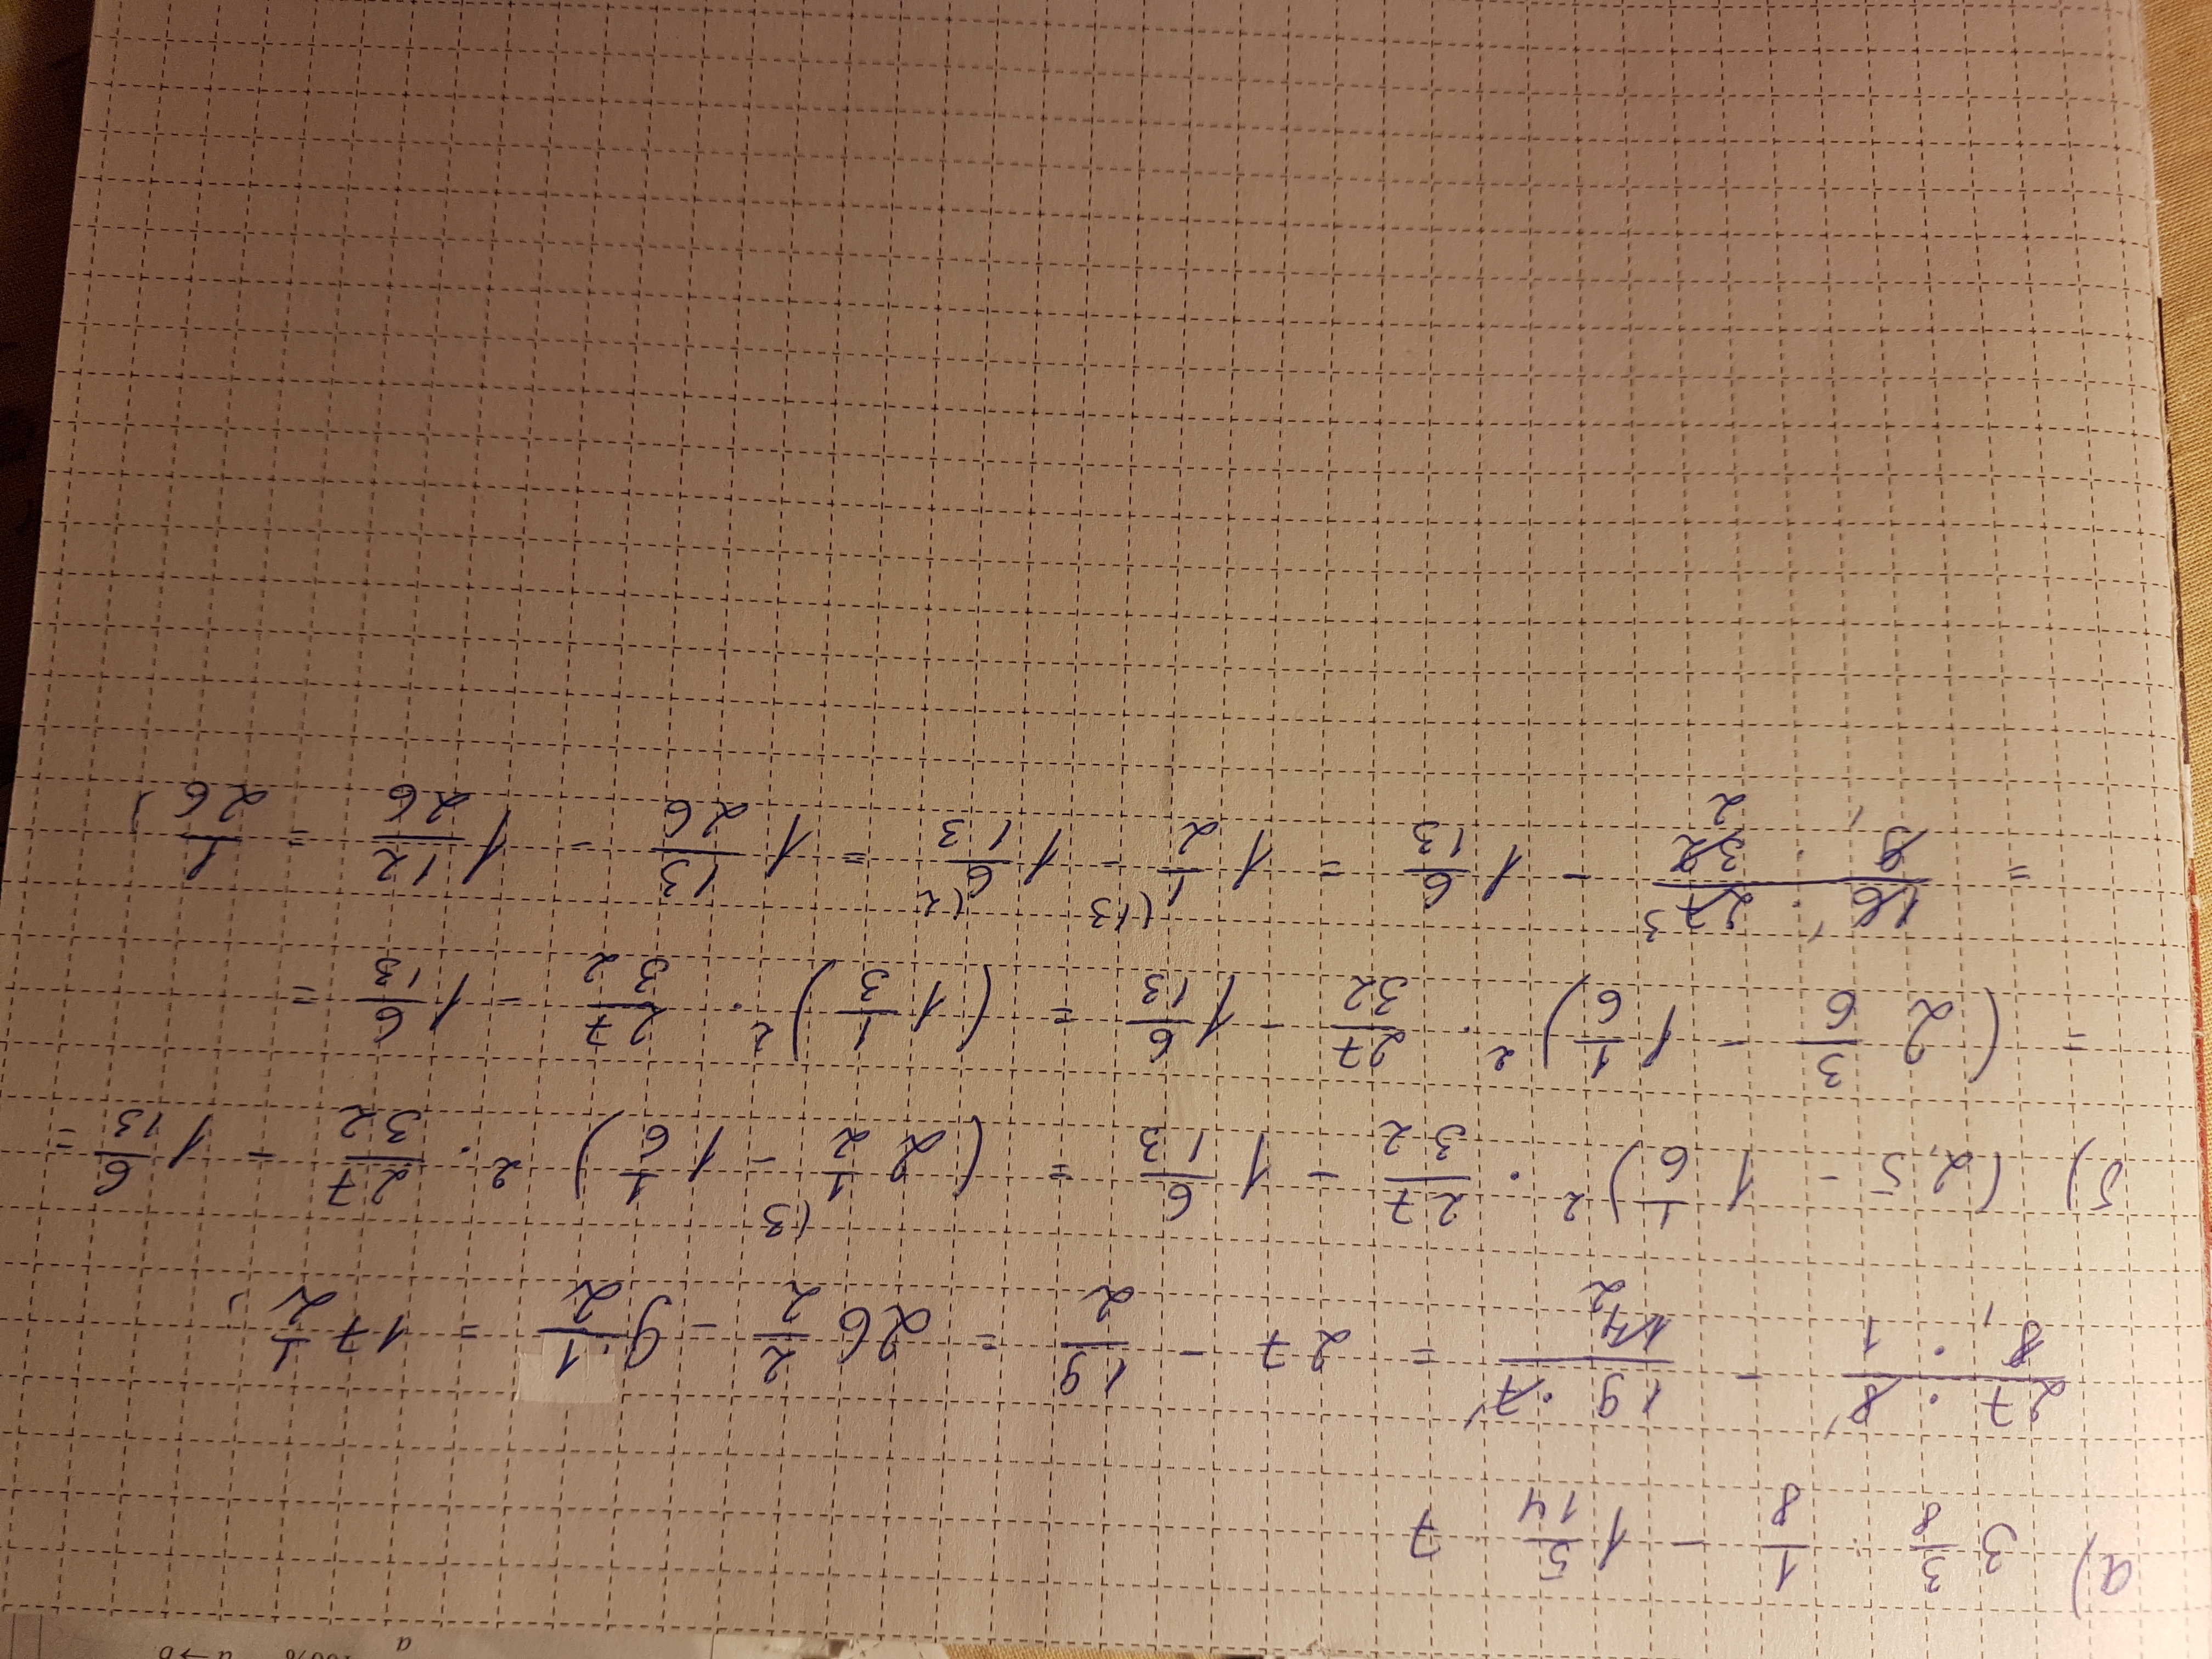 100% a→b
a
а) 3 3/8 : 1/8 - 1 5/14 · 7
27 · 8 / 8 · 1 - 19 · 7 / 14 2 = 27 - 19/2 = 26 2/2 - 9 1/2 = 17 1/2;
б) (2,5 - 1 1/6)² · 27/32 - 1 6/13 = (2 1/2 (3 - 1 1/6)² · 27/32 - 1 6/13 =
= (2 3/6 - 1 1/6)² · 27/32 - 1 6/13 = (1 1/3)² · 27/32 - 1 6/13 =
= 16 1 · 27 3 / 9 1 · 32 2 - 1 6/13 = 1 1/2 (13 - 1 6/13 (2 = 1 13/26 - 1 12/26 = 1/26;